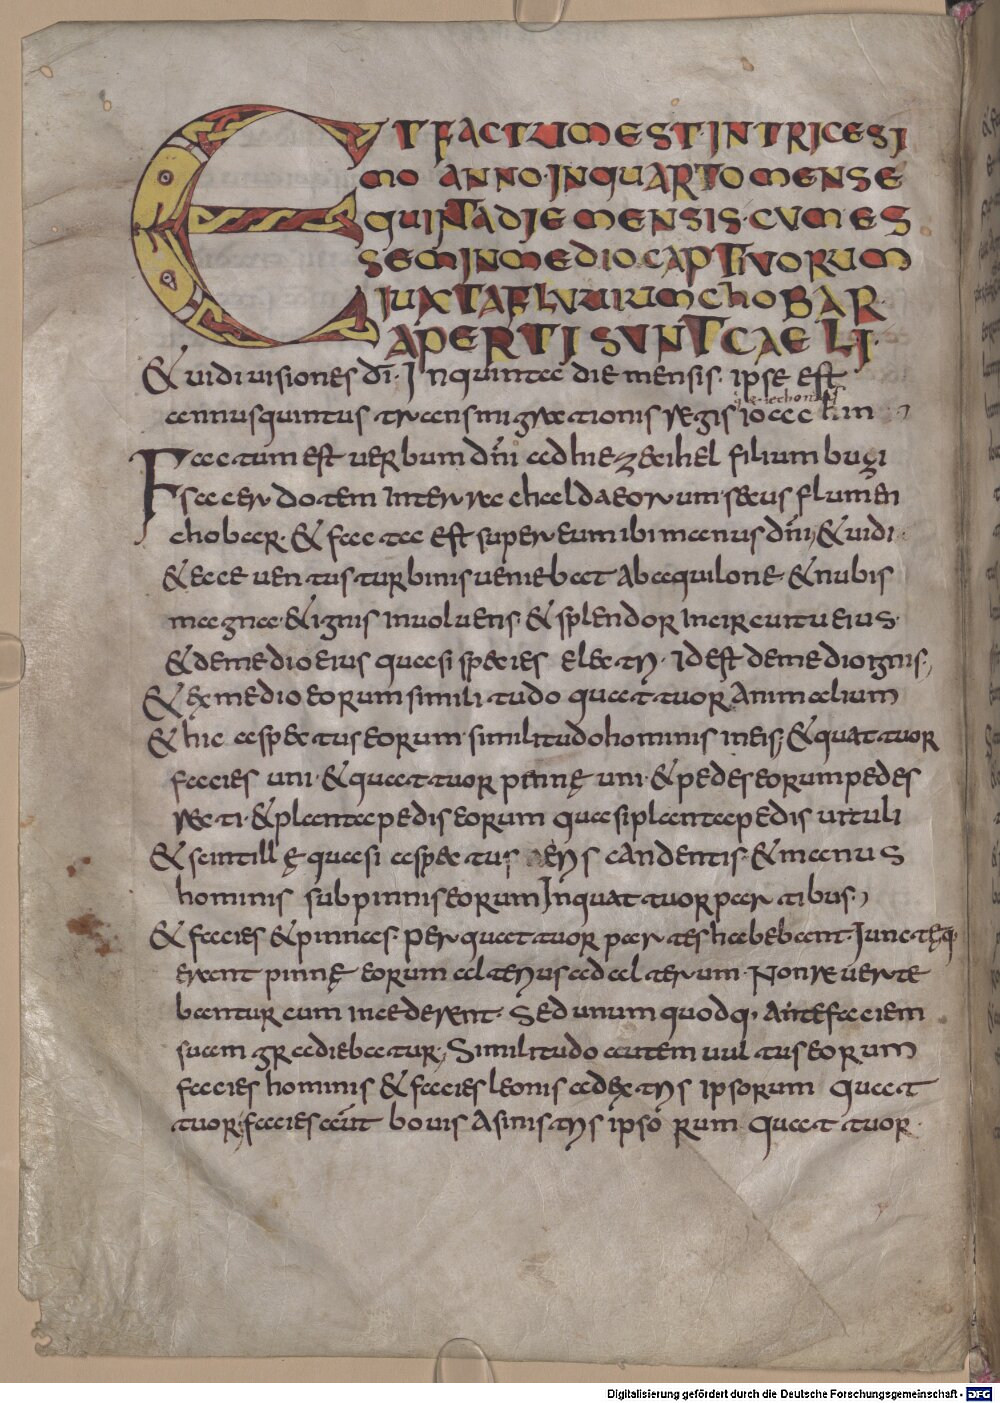 ET FACTUM EST·IN TRICESI
MO ANNO·IN QUARTO MENSE
QUINTA DIE MENSIS·CUM ES
SEM IN MEDIO CAPTIVORUM
IUXTA FLUVIUM CHOBAR
APERTI SUNT CAELI·
& uidi uisiones dī· In quinta die mensis· ipse est
annus quintus transmigrationis regis ioachin
Factum est uerbum dn̄i ad hiezeihel filium buzi
sacerdotem inter ra chaldaeorum·secus flumen
chobar· & facta est super eum ibi manus dn̄i; & uidi·
& ecce uentus turbinis ueniebat ab aquilone· & nubis
magna·& ignis inuoluens·& splendor in circuitu eius·
& de medio eius quasi species electri· id est de medio ignis;
& ex medio eorum similitudo quattuor animalium
& hic aspectus eorum·similitudo hominis in eis; & quattuor
facies uni·& quattuor pennę uni·& pedes eorum pedes
recti·& planta pedis eorum quasi planta pedis uituli
& scintillę quasi aspectus aeris candentis·& manus
hominis sub pinnis eorum In quattuor partibus·
& facies & pinnas· per quattuor partes habebant·Iunctęq·
erant pinnę eorum alterius ad alterum· Non reuerte
bantur cum incederent· Sed unum quodq· ante faciem
suam gradiebatur; Similitudo autem uultus eorum
facies hominis & facies leonis a dextris ipsorum quat
tuor; facies aūt bouis a sinistris ipsorum quattuor·
Digitalisierung gefördert durch die Deutsche Forschungsgemeinschaft - DFG